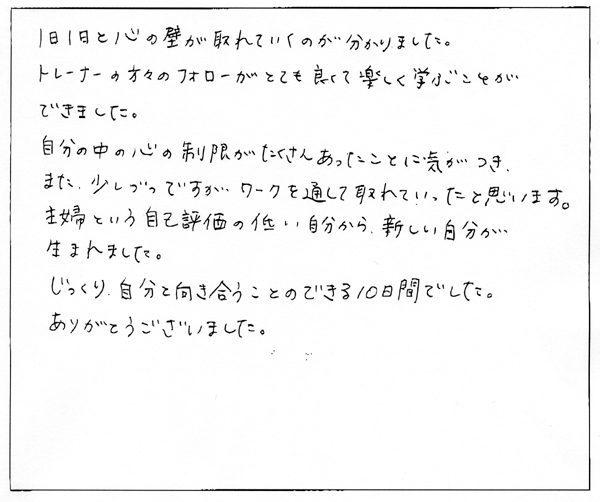 1日1日と心の壁が取れていくのが分かりました。
トレーナーの方々のフォローがとても良くて楽しく学ぶことが
できました。
自分の中の心の制限がたくさんあったことに気がつき、
また、少しづつですが ワークを通して取れていったと思います。
主婦という自己評価の低い自分から、新しい自分が
生まれました。
じっくり、自分と向き合うことのできる10日間でした。
ありがとうございました。